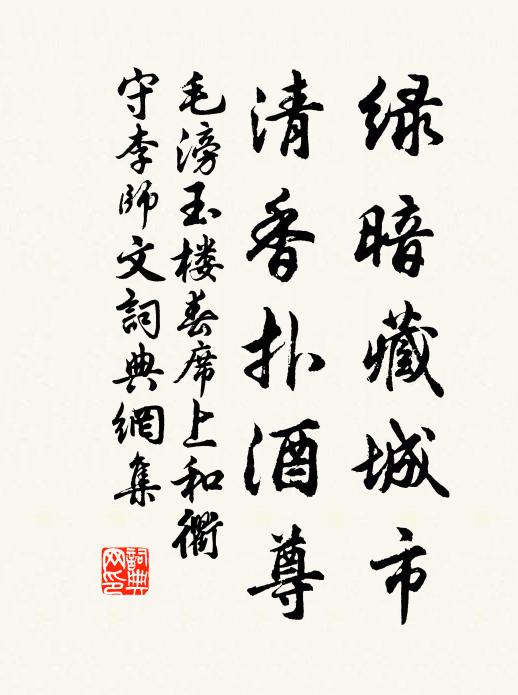 绿暗藏城市
清香扑酒尊
毛滂玉楼春席上和衢
守李师文詞典網集
詞典网印